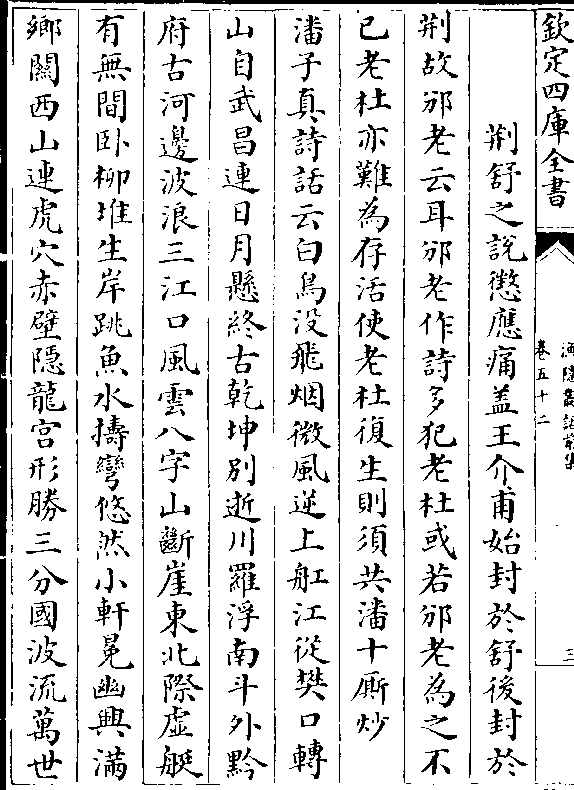 欽定四庫全書
漁隱叢話前集
卷五十二
三
荆舒之說懲應痛盖王介甫始封於舒後封於
荆故邠老云耳邠老作詩多犯老杜或若邠老為之不
已老杜亦難為存活使老杜復生則須共潘十厮炒
潘子真詩話云白鳥没飛烟微風逆上舡江從樊口轉
山自武昌連日月懸終古乾坤别逝川羅浮南斗外黔
府古河邊波浪三江口風雲八字山斷崖東北際虚艇
有無間卧柳堆生岸跳魚水擣彎悠然小軒冕幽興滿
鄉關西山連虎穴赤壁隠龍宫形勝三分國波流萬世